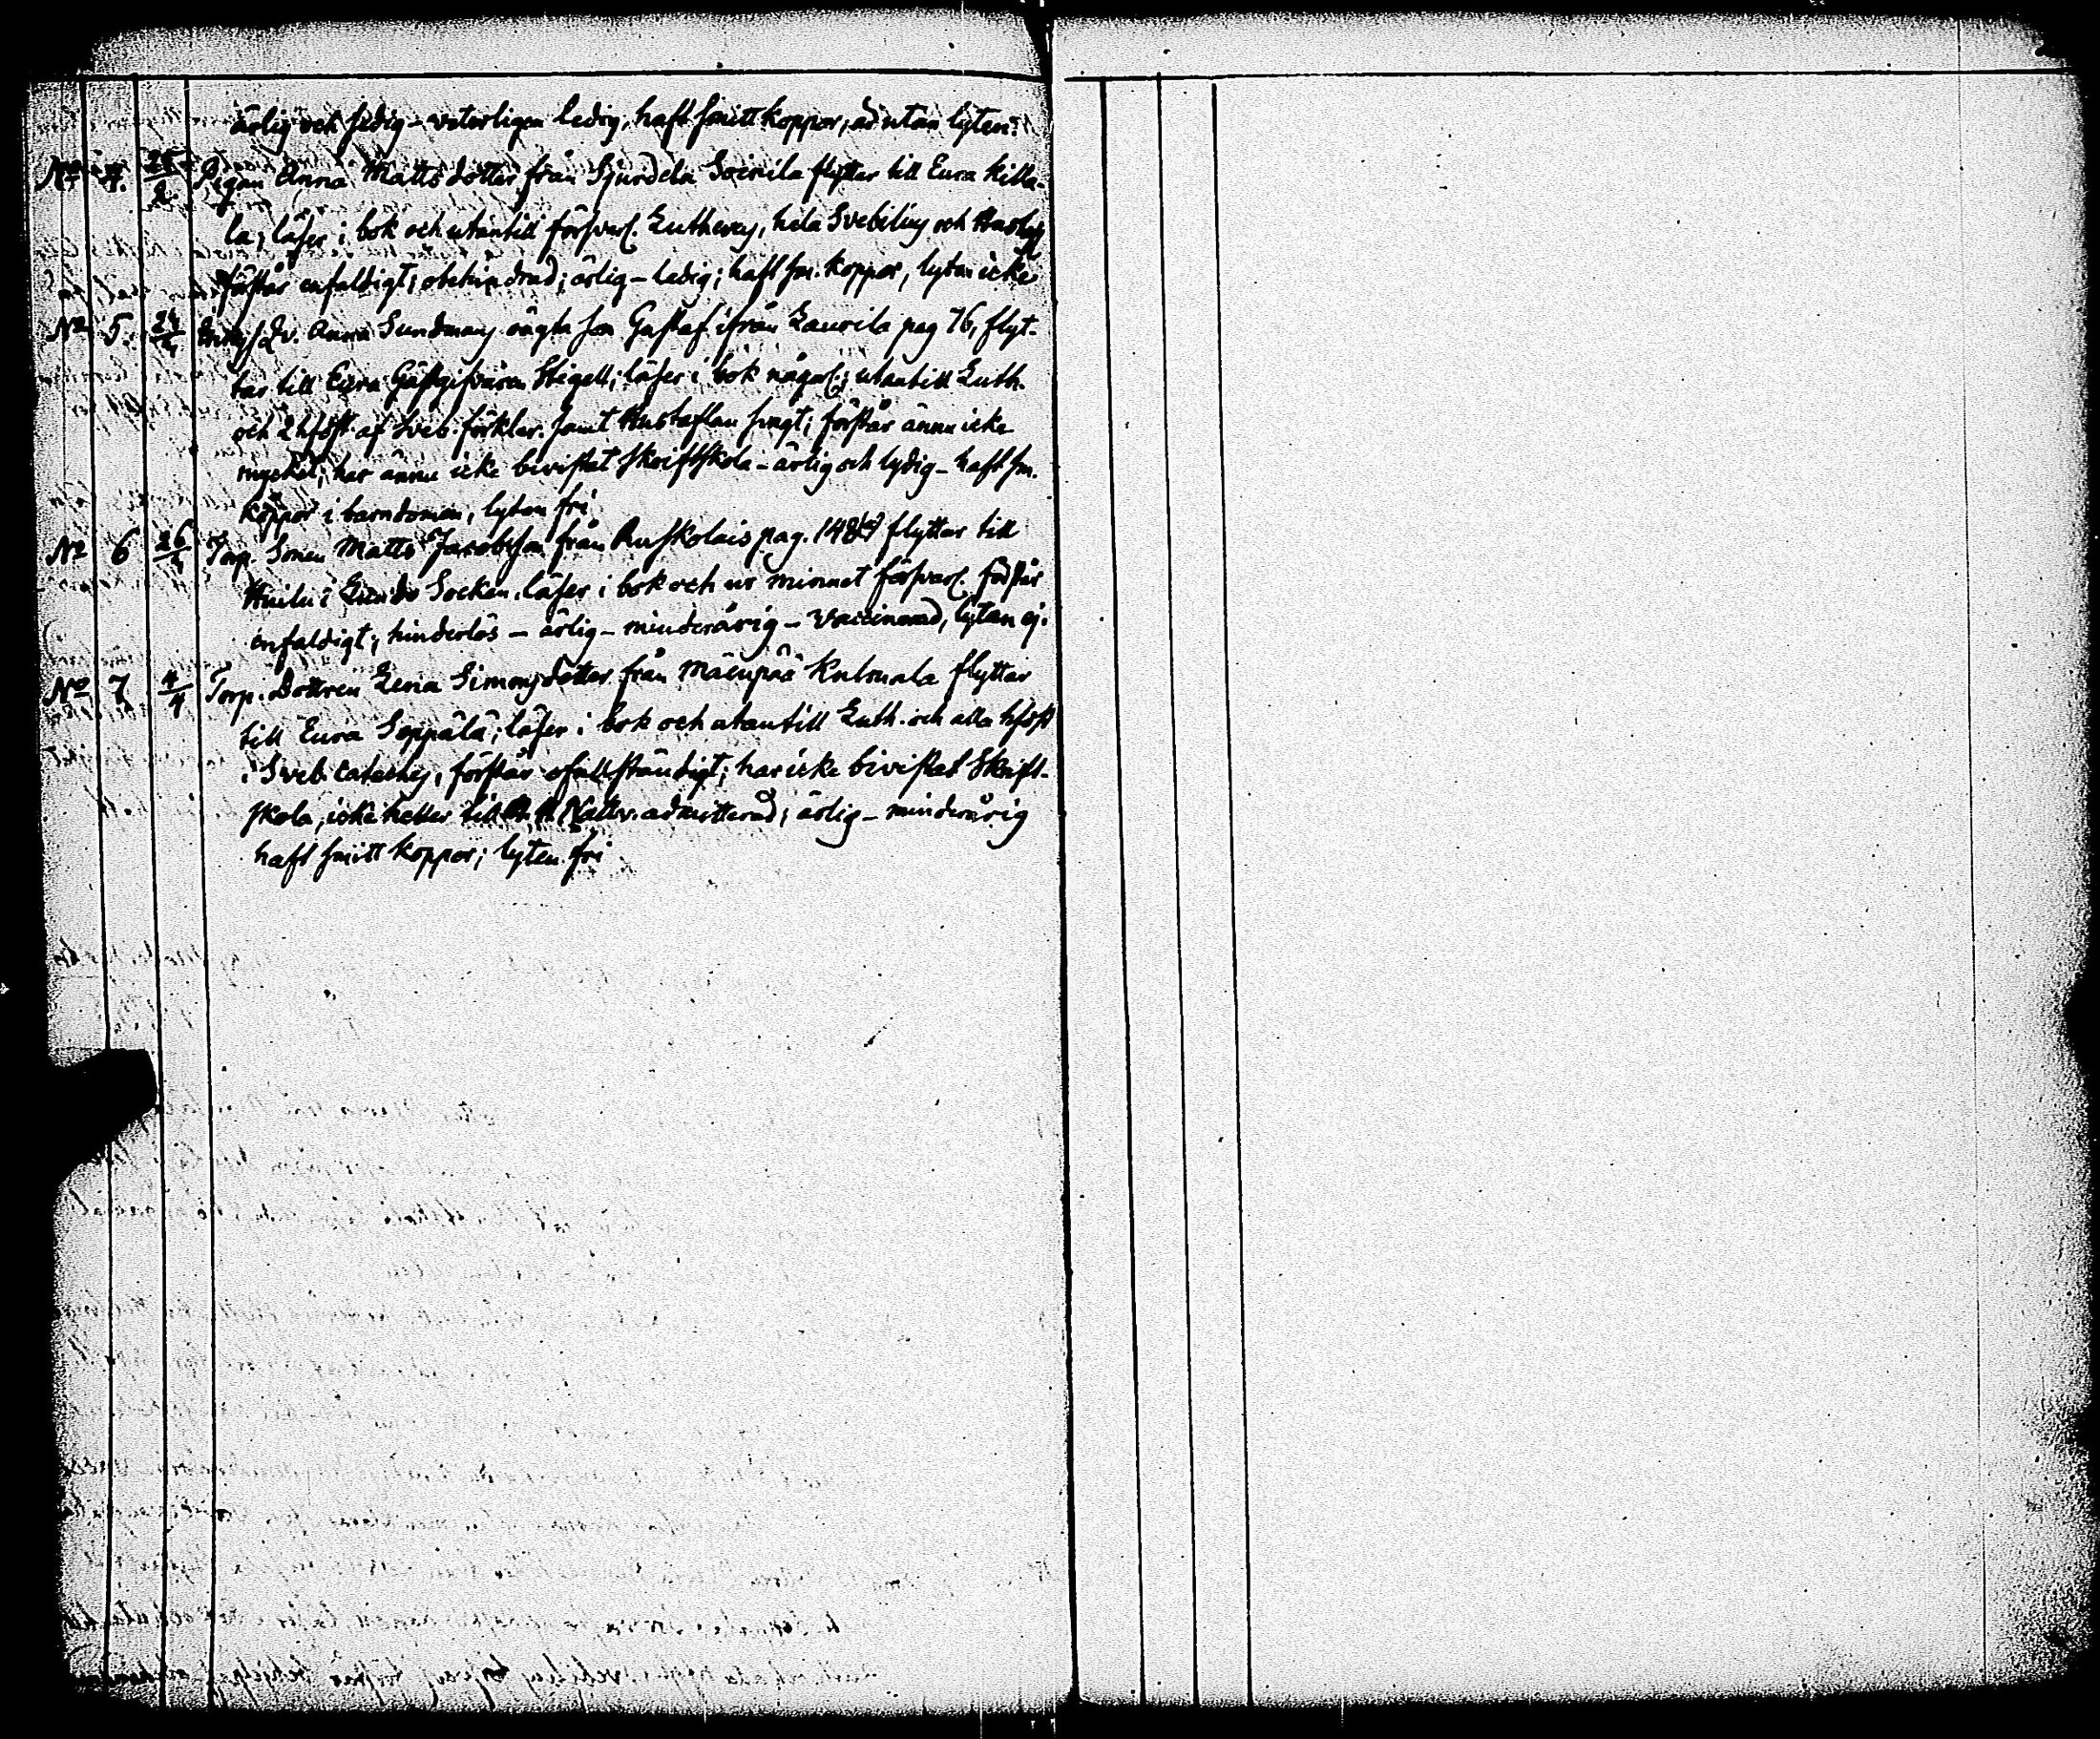 ärlig och sedig – veterligen ledig, haft smitt koppor, är utan lyten.
No 4. Pigan Anna Matts dotter från Sjurdela Soinila flyttar till Eura Kitta-
la; läser i bok och utantill försvarl. Lutheraj, hela Svebilii och Hustafl
förstår enfaldigt; obehindrad; ärlig – ledig; haft sm. koppor, lyten icke
No 5. 24/4 Qv. Anna Sundmans oägta son Gustaf ifrån Laurila pag 76, flyt-
tar till Eura Gästgifvaren Stigell; läser i bok någorl.; utantill Luth.
och 2 hfdst. af Sveb. förklar. samt Hustaflan svagt; förstår ännu icke
mycket; har ännu icke bevistat Skriftskola – ärlig och lydig – haft sm.
koppor i barndomen, lyten fri
No 6 26/4 Torp. Sonen Matts Jacobsson från Ruskolais pag. flyttar till
i Socken. läser i bok och ur minnet försvarl. förstår
enfaldigt; hinderlös – ärlig – minderårig – Vaccinerad, lyten ej.
No 7 Torp. Dottren Lena Simonsdotter från Mäenpää Kulmala flyttar
till Eura Seppälä; läser i bok och utantill Luth. och alla hfdst
i Sveb. Cateches, förstår ofullständigt; har icke bivistat Skrift-
skola, icke heller till H. H. Nattv. admitterad; ärlig – minderårig
haft smitt koppor; lyten fri